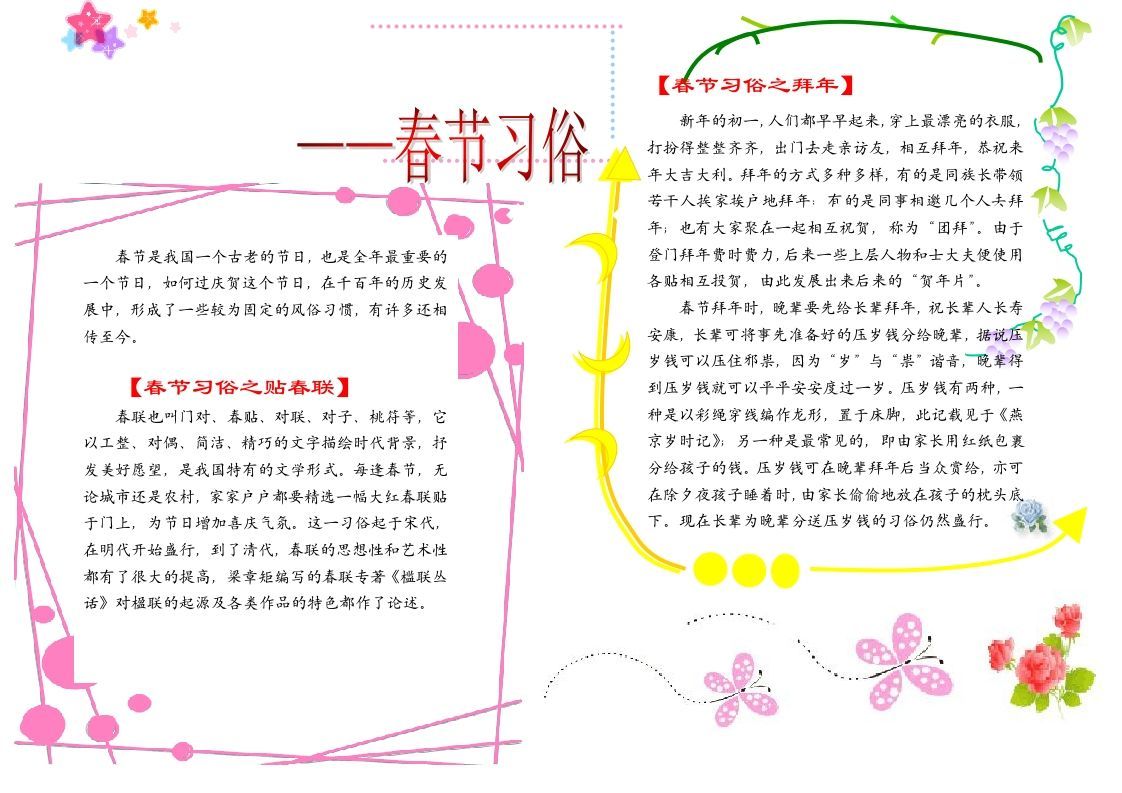 ——春节习俗
春节是我国一个古老的节日，也是全年最重要的
一个节日，如何过庆贺这个节日，在千百年的历史发
展中，形成了一些较为固定的风俗习惯，有许多还相
传至今。
【春节习俗之贴春联】
春联也叫门对、春贴、对联、对子、桃符等，它
以工整、对偶、简洁、精巧的文字描绘时代背景，抒
发美好愿望，是我国特有的文学形式。每逢春节，无
论城市还是农村，家家户户都要精选一幅大红春联贴
于门上，为节日增加喜庆气氛。这一习俗起于宋代，
在明代开始盛行，到了清代，春联的思想性和艺术性
都有了很大的提高，梁章矩编写的春联专著《槛联丛
话》对楹联的起源及各类作品的特色都作了论述。
【春节习俗之拜年】
新年的初一，人们都早早起来，穿上最漂亮的衣服，
打扮得整整齐齐，出门去走亲访友，相互拜年，恭祝来
年大吉大利。拜年的方式多种多样，有的是同族长带领
若干人挨家挨户地拜年；有的是同事相邀几个人去拜
年；也有大家聚在一起相互祝贺，称为“团拜”。由于
登门拜年费时费力，后来一些上层人物和士大夫便使用
各贴相互投贺，由此发展出来后来的“贺年片”。
春节拜年时，晚辈要先给长辈拜年，祝长辈人长寿
安康，长辈可将事先准备好的压岁钱分给晚辈，据说压
岁钱可以压住邪祟，因为“岁”与“祟”谐音，晚辈得
到压岁钱就可以平平安安度过一岁。压岁钱有两种，一
种是以彩绳穿线编作龙形，置于床脚，此记载见于《燕
京岁时记》；另一种是最常见的，即由家长用红纸包裹
分给孩子的钱。压岁钱可在晚辈拜年后当众赏给，亦可
在除夕夜孩子睡着时，由家长偷偷地放在孩子的枕头底
下。现在长辈为晚辈分送压岁钱的习俗仍然盛行。